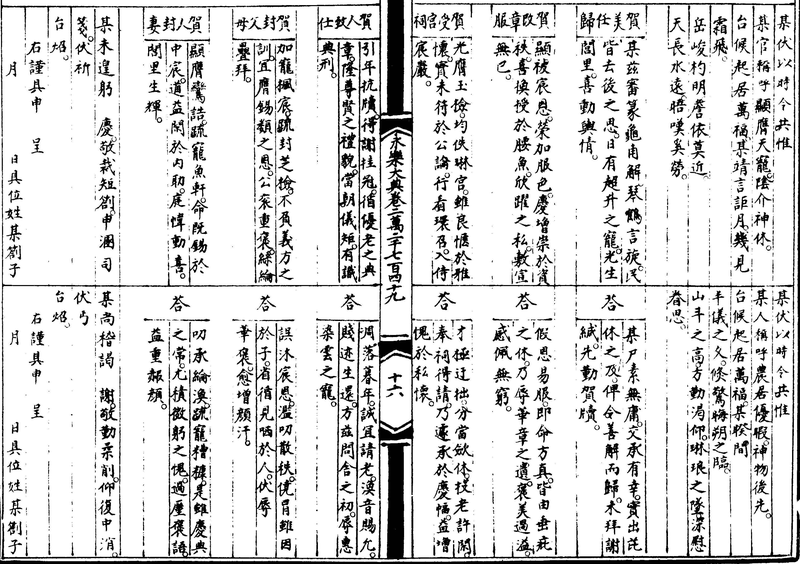 某伏以時令共惟
某官稱呼顯膺天寵陰介神休
台候起居萬福某靖言詎月幾見
霜飛
岳峻杓明詹依莫近
天長水遠晤嘆奚勞
賀美任歸
某茲審篆龜甫解琴鶴言旋民
皆去後之思日有超升之寵光生
閭里喜動輿情
賀改章服
顯被宸恩榮加服色慶增崇於資
秩喜換授於腰魚欣躍之私敷宣
無已
賀受宮祠
光膺玉檢均佚琳宮雖良愜於雅
懷實未符於公論行看環召入侍
宸嚴
某伏以時令共惟
某人稱呼農若優暇神物後先
台候起居萬福某睽間
丰儀之久倐驚梅朔之臨
山斗之高方勤渴仰琳琅之墜深慰
眷思
荅
某尸素無庸交承有幸實出芘
休之及俾令善解而歸未拜謝
緘先勤賀牘
荅
假恩易服即命方真皆由垂芘
之休乃辱華章之遺褒美過溢
感佩無窮
荅
才極迂拙分當斂休投老許閑
奉祠得請乃遽承於慶幅益增
愧於私懷
永樂大典卷二萬二千七百四十九
十六
賀人致仕
引年抗牘得謝挂冠循優老之典
章隆尊賢之禮貌當朝儀矩有識
典刑
賀封父母
加寵楓宸疏封芝檢不負義方之
訓宜膺錫類之恩公袞重褒綵綸
疊拜
賀人封妻
顯膺鸞誥疏寵魚軒命既錫於
中宸道益閑於內助庭幃動喜
閭里生輝
某未遑躬 慶敬裁短劄申溷司
箋伏祈
台炤
右謹具申 呈
月 日具位姓某劄子
荅
凋落暮年誠宜請老渙音賜允
賤迹生還方茲問舍之初辱惠
染雲之寵
荅
誤沐宸恩濫叨散秩俛冒雖因
於子省循見哂於人伏辱
華褒愈增顏汗
荅
叨承綸渙疏寵糟糠是雖慶典
之常尤積微躬之愧過廑褒語
益重赧顏
某尚稽謁 謝敬勤柔削仰復中涓
伏丐
台炤
右謹具申 呈
月 日具位姓某劄子